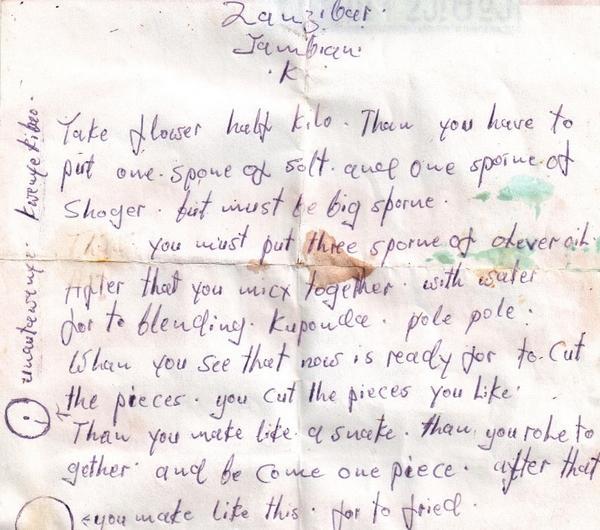 Zanzibar.
Jambian.
.K
Take flower half kilo. Than you have to
put one. spone of solt. and one sporne of
Shoger. but must be big sporne.
you must put three sporne of olever oil.
After that you micx together. with water
for to blending. Kuponda. pole pole.
Whan you see that now is ready for to. Cut
the pieces. you cut the pieces you like.
Than you make like a snake. than you role to
gether. and be come one piece. after that
you make like this. for to fried.
kwenye kibao.